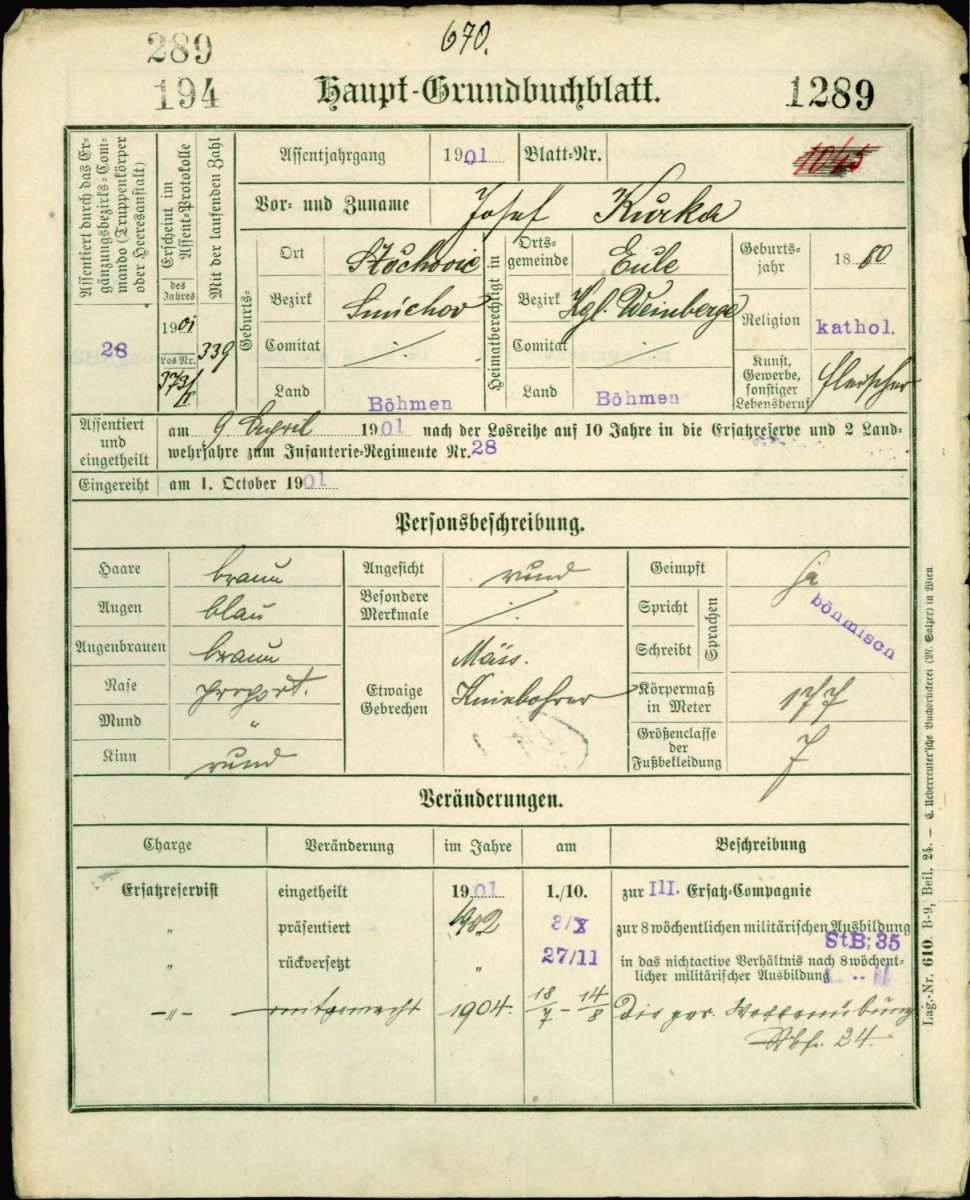 289
670.
194
Haupt-Grundbuchblatt.
1289
Assentiert durch das Er-
gänzungsbezirks-Com-
mando (Truppenkörper
oder Heeresanstalt)
28
Erscheint im
Assent-Protokolle
des
Jahres
1901
Los Nr.
373/
Mit der laufenden Zahl
339
Assentjahrgang 1901 Blatt-Nr. 1045
Vor- und Zuname Josef Kurka
Geburts-
Ort Stěchovic
Bezirk Smíchov
Comitat ./.
Land Böhmen
Heimatberechtigt in
Orts-
gemeinde Eule
Bezirk Kgl. Weinberge
Comitat ./.
Land Böhmen
Geburts-
jahr 1880
Religion kathol.
Kunst,
Gewerbe,
sonstiger
Lebensberuf fleischer
Assentiert
und
eingetheilt
am 9. April 1901 nach der Losreihe auf 10 Jahre in die Ersatzreserve und 2 Land-
wehrjahre zum Infanterie-Regimente Nr. 28
Eingereiht am 1. October 1901
Personsbeschreibung.
Haare braun
Augen blau
Augenbrauen braun
Nase proport.
Mund "
Kinn rund
Angesicht rund
Besondere
Merkmale ./.
Etwaige
Gebrechen
Mäss.
Kniebohrer
Geimpft ja
Spricht
Schreibt
Sprachen
böhmisch
Körpermaß
in Meter 177
Größenclasse
der
Fußbekleidung 7
Veränderungen.
Charge Veränderung im Jahre am Beschreibung
Ersatzreservist eingetheilt 1901 1./10. zur III. Ersatz-Compagnie
" präsentiert 1902 3/X zur 8 wöchentlichen militärischen Ausbildung
StB: 35
" rückversetzt " 27/11 in das nichtactive Verhältnis nach 8 wöchent-
licher militärischer Ausbildung
-"- mitgemacht 1904. 18/7 - 14/8 Die per. Waffenübung
Stbfr. 24.
Lag.-Nr. 610. B-9, Beil. 24. — C. Ueberreuter'sche Buchdruckerei (M. Salzer) in Wien